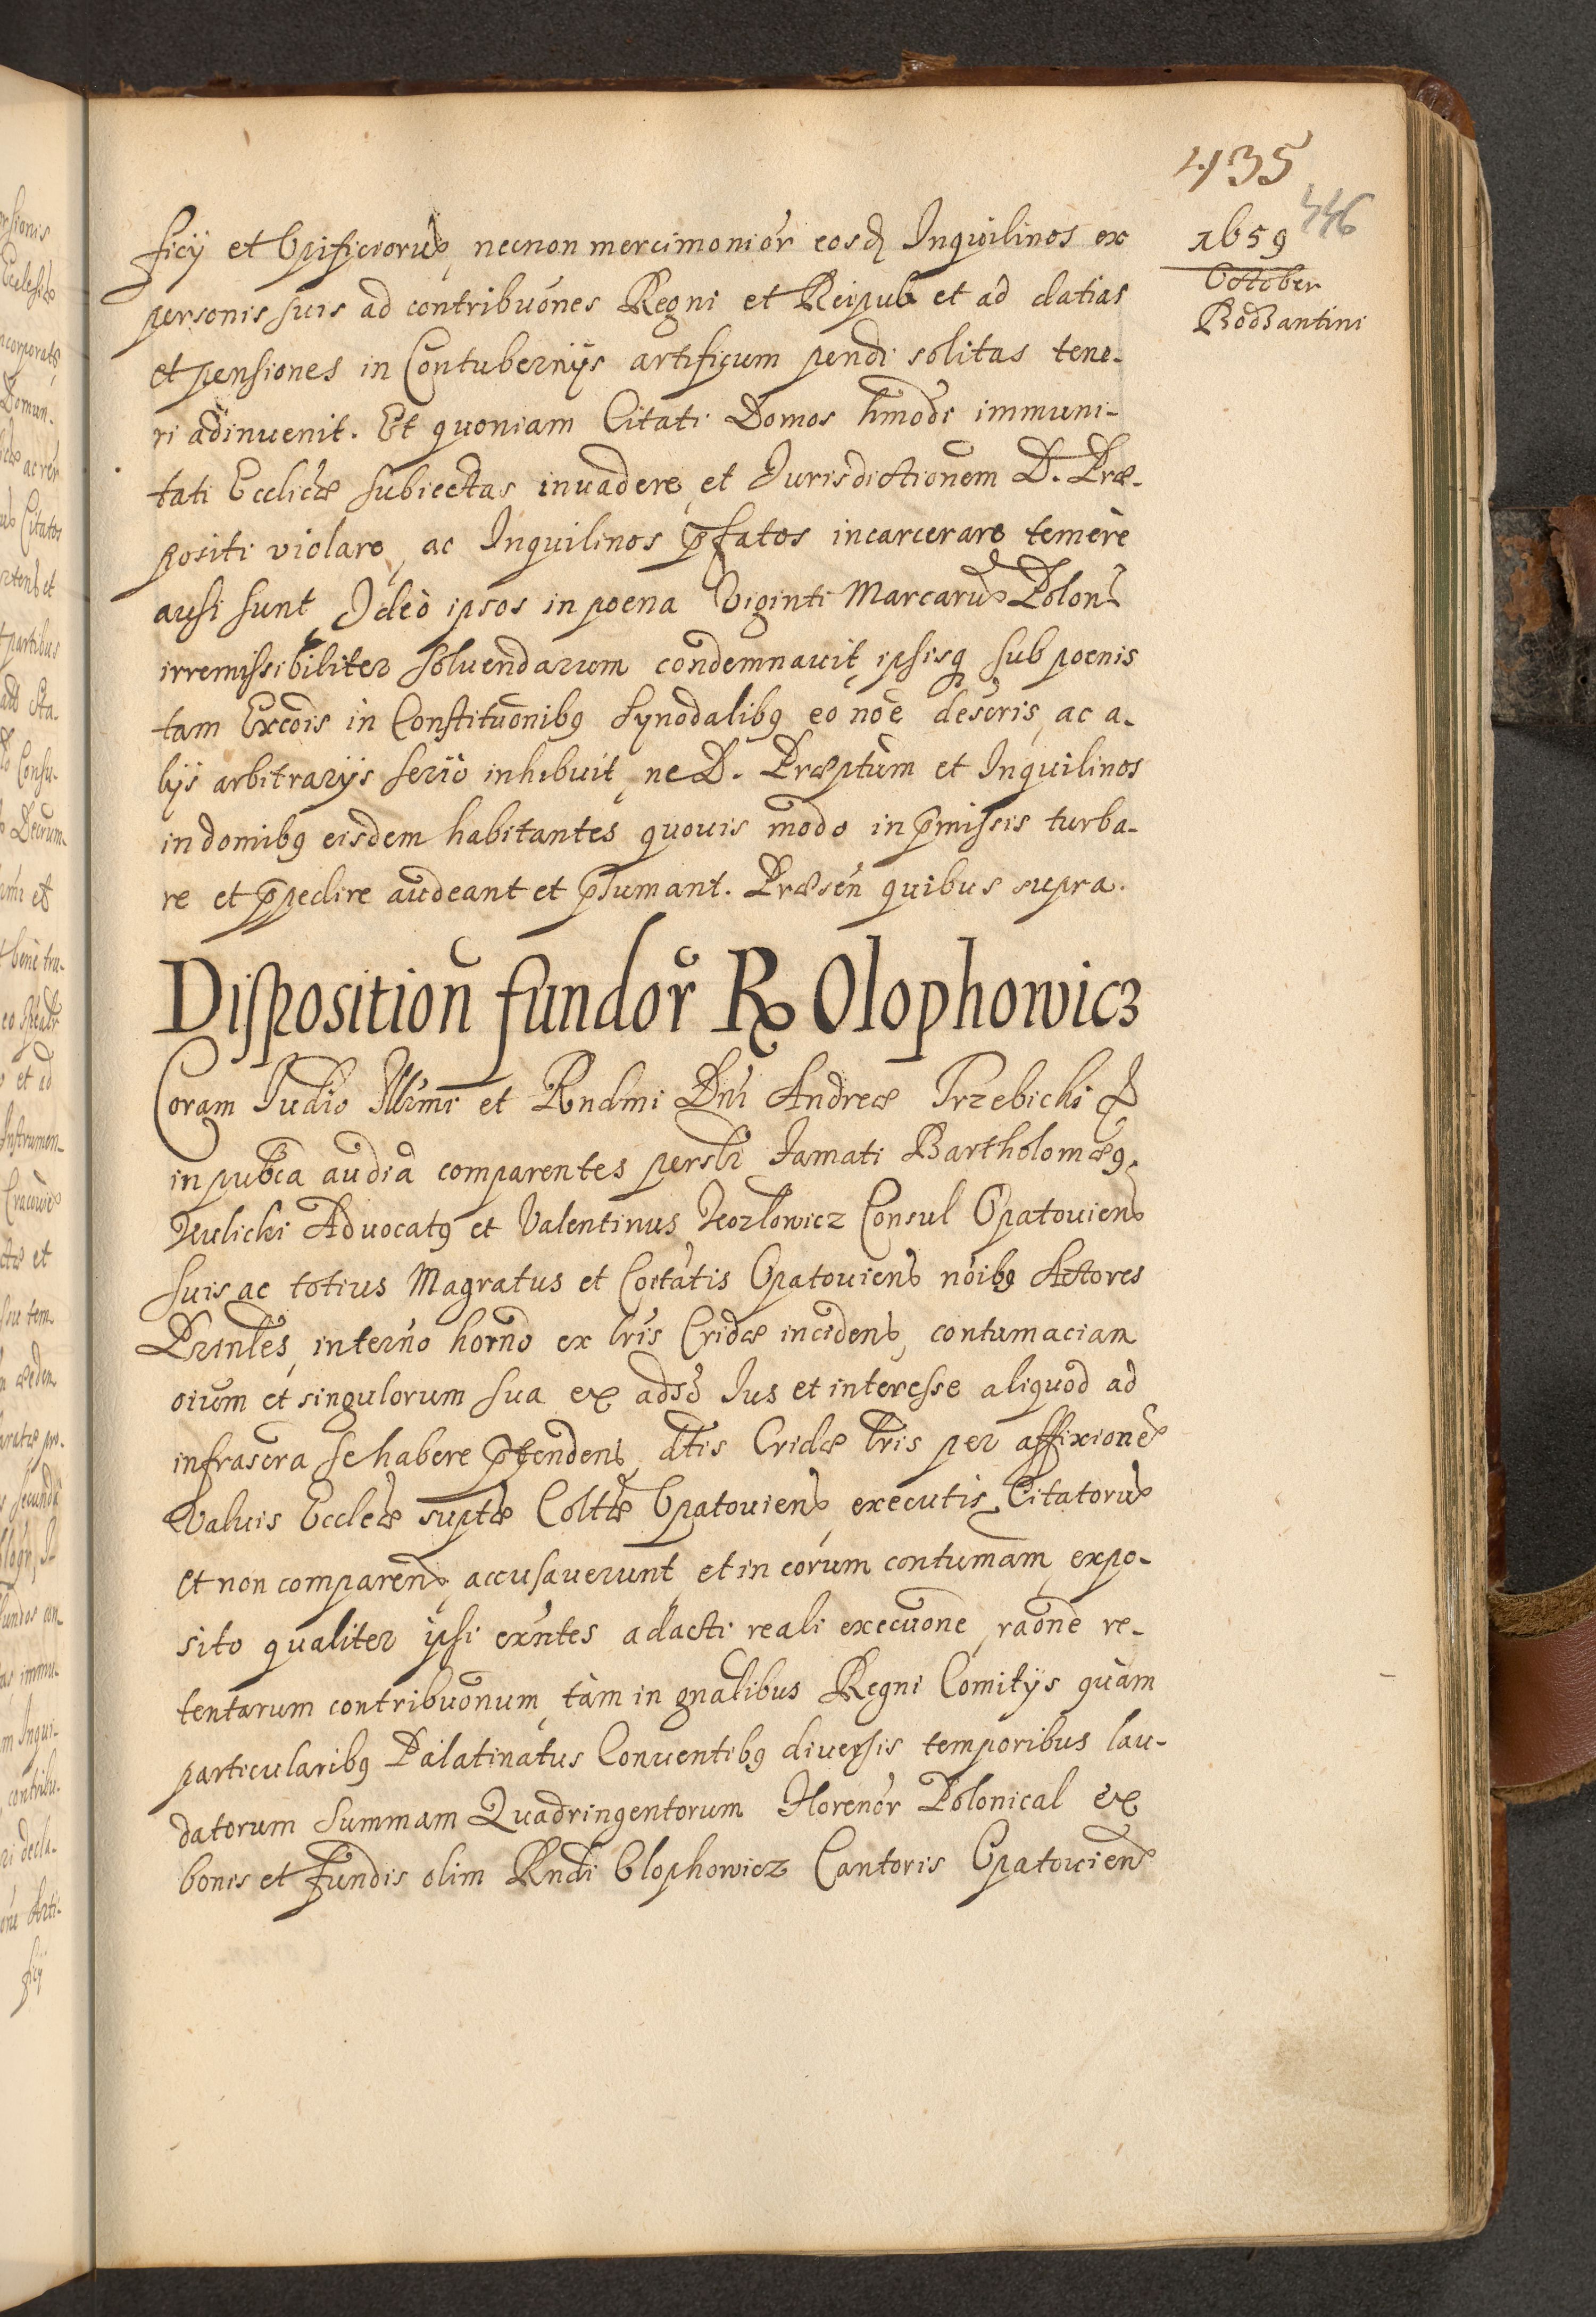 435
446
1659
October
Bodzantini
ficij et Opificiorum, necnon mercimoniōr eosd Inquilinos ex
personis suis ad contribuōnes Regni et Reipub et ad datias
et pensiones in Contubernijs artificum pendi solitas tene-
ri adinuenit. Et quoniam Citati Domos hmōdi immuni-
tati Eccliæ subiectas inuadere, et Iurisdictionem D. Præ-
positi violare, ac Inquilinos p̄fatos incarcerare temerè
ausi sunt, Ideò ipsos in poena Viginti Marcarum Polon
irremissibiliter soluendarum condemnauit, ipsisq sub poenis
tam Excōis in Constituōnibq Synodalibq eō nōē descris, ac a-
lijs arbitrarijs seriò inhibuit, ne D. Præptum et Inquilinos
in domibq eisdem habitantes quouis modo in p̄missis turba-
re et p̄pedire audeant et p̄sumant. Præsēn quibus supra.
Disposition fundōr R Olophowicz
Coram Iudio Illmi et Rndmi Dni Andreæ Trzebicki &
in pubca audia comparentes persltr famati Bartholomæq
Kulicki Aduocatq et Valentinus Kozlowicz Consul Opatouien
suis ac totius Magratus et Coītatis Opatouien nōibq Actores
Prīntes, in terno horno ex lris Cridæ inciden, contumaciam
oium et singulorum sua ex adso Ius et interesse aliquod ad
infrascra se habere p̄tenden, dtis Cridæ lris per affixionem
Valuis Eccleæ suptæ Coltæ Opatouien, executis, Citatorum
et non comparen, accusauerunt, et in eorum contumam, expo-
sito qualiter ipsi exn̄tes adacti reali execuōne, raōne re-
tentarum contribuōnum, tàm in gnalibus Regni Comitijs quàm
particularibq Palatinatus Conuentibq diuersis temporibus lau-
datorum summam Quadringentorum Florenōr Polonical ex
bonis et fundis olim Rndi Olophowicz Cantoris Opatouien